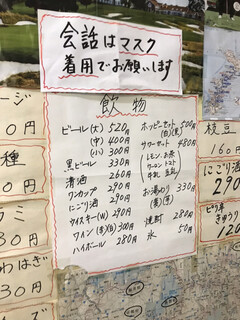 会話はマスク
着用でお願います
飲物
ビール(大) 520円
(中) 400円
(小) 300円
黒ビール 330円
清酒 260円
ワンカップ 290円
にごり酒 290円
ウイスキー(W) 290円
ワイン(赤)(白) 300円
ハイボール 280円
ホッピーセット 500円
(白)(黒)
サワーセット 480円
レモン お茶
ウーロン トマト
牛乳 豆乳
お湯わり 330円
(麦)(芋)
焼酎 280円
氷 50円
枝豆
160円
にごり酒
290
ピリ辛
きゅうり
ージ
0円
種
0円
ラミ
30円
わはぎ
30円